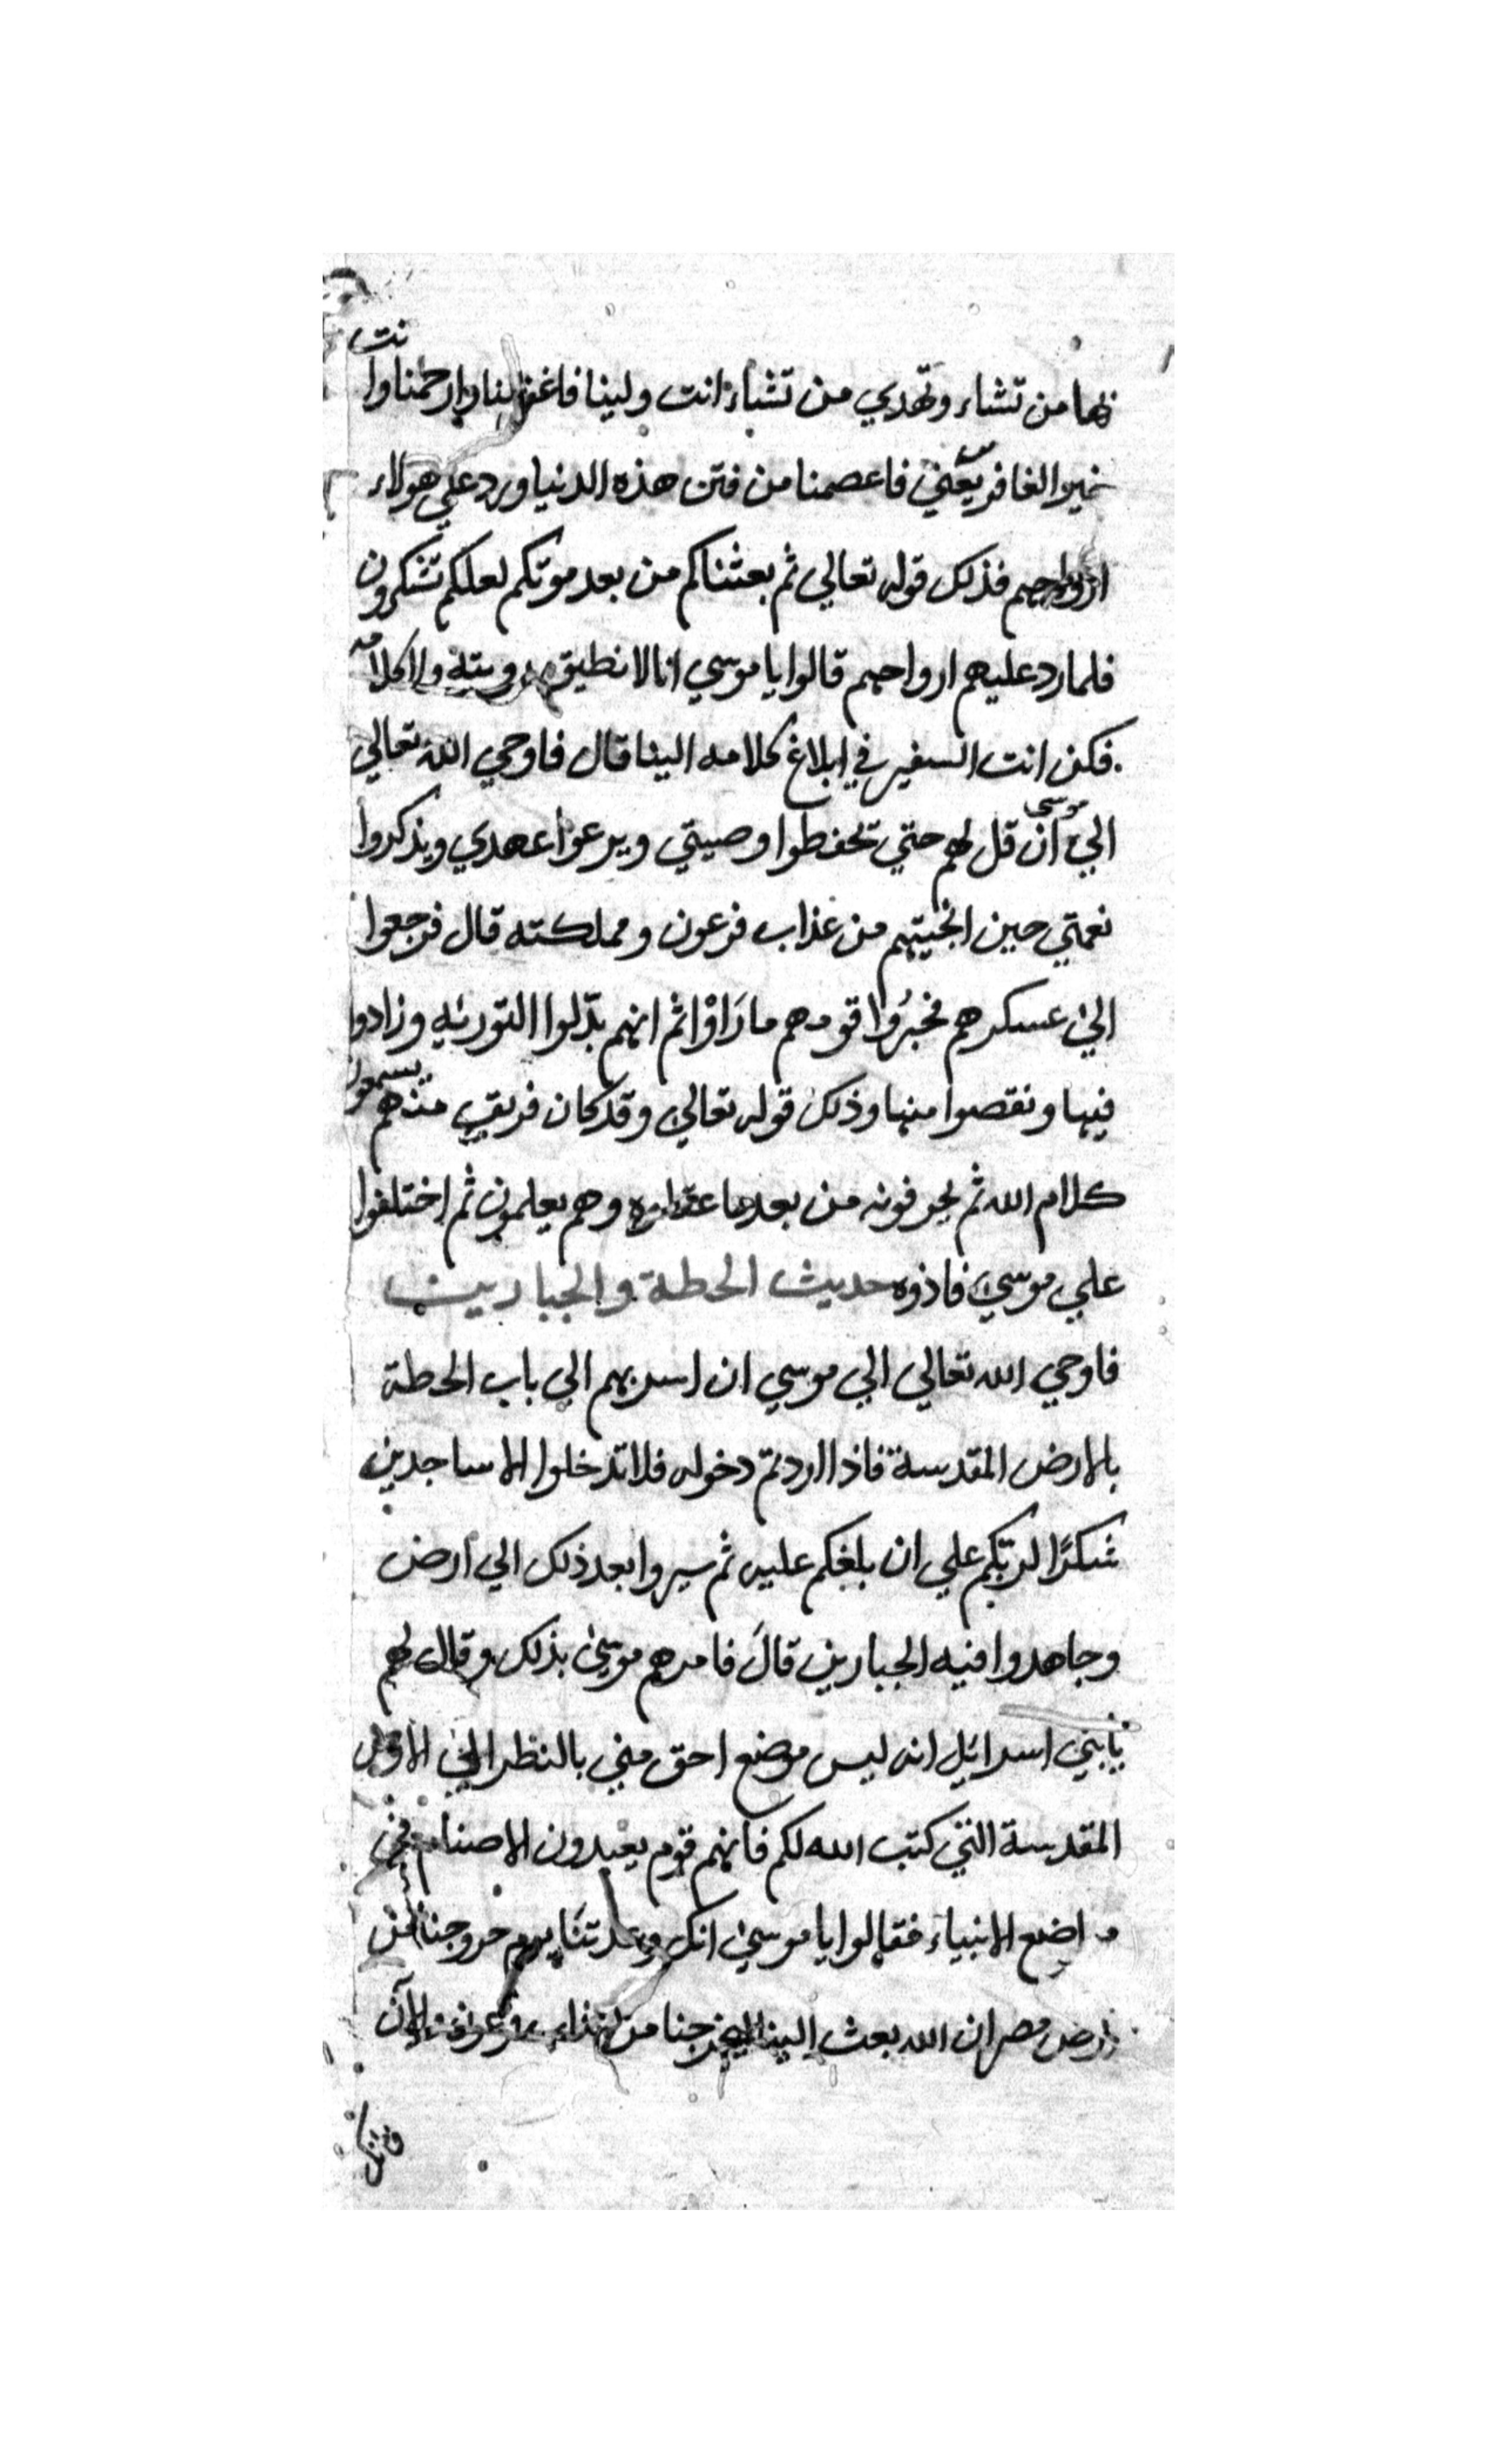 بها من تشاء وتهدي من تشاء انت ولينا فاغفر لنا وارحمنا وانت
خير الغافرين يعني فاعصمنا من فتن هذه الدنيا ورد علي هولاء
ارواحهم فذلك قوله تعالي ثم بعثناكم من بعد موتكم لعلكم تشكرون
فلما رد عليهم ارواحهم قالوا يا موسي انا لا نطيق رويته ولا كلامه
فكن انت السفير في ابلاغ كلامه الينا قال فاوحي الله تعالي
الي موسى ان قل لهم حتي تحفظوا وصيتي ويرعوا عهدي ويذكروا
نعمتي حين انجيتهم من عذاب فرعون ومملكته قال فرجعوا
الي عسكرهم فخبروا قومهم ما رَاوْا ثم انهم بدّلوا التورىٰه وزادوا
فيها ونقصوا منها وذلك قوله تعالي وقد كان فريق منهم يسمعون
كلام الله ثم يحرفونه من بعد ما عقلوه وهم يعلمون ثم اختلفوا
علي موسي فاذوه حديث الحطة والجبارين
فاوحي الله تعالي الي موسي ان اسر بهم الي باب الحطة
بالارض المقدسة فاذا اردتم دخوله فلا تدخلوا الا ساجدين
شكرًا لربّكم علي ان بلغكم عليه ثم سيروا بعد ذلك الي ارض
وجاهدوا فيه الجبارين قالَ فامرهم موسىٰ بذلك وقال لهم
يا بني اسرائيل انه ليس موضع احق مني بالنظر الي الارض
المقدسة التي كتب الله لكم فانهم قوم يعبدون الاصنام في
مواضع الانبياء فقالوا يا موسىٰ انك وعدتنا يوم خروجنا من
ارض مصر ان الله بعث الينا ليخرجنا من فرعون الآن